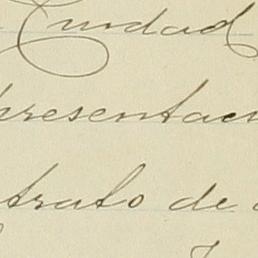 Ciudad
presentac
trato de